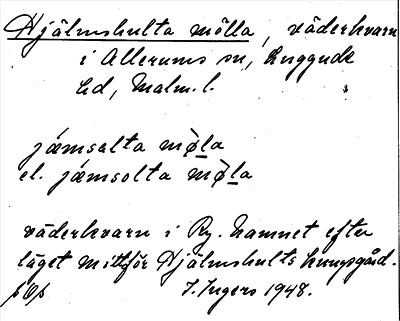 Hjälmshulta mölla, väderkvarn
i Allerums sn, Luggude
hd, Malm. l.
jæmsalta mø̀la
el. jæmsolta mø̀la
väderkvarn i Ry. Namnet efter
läget mittför Hjälmshults kungsgård.
I. Ingers 1948.